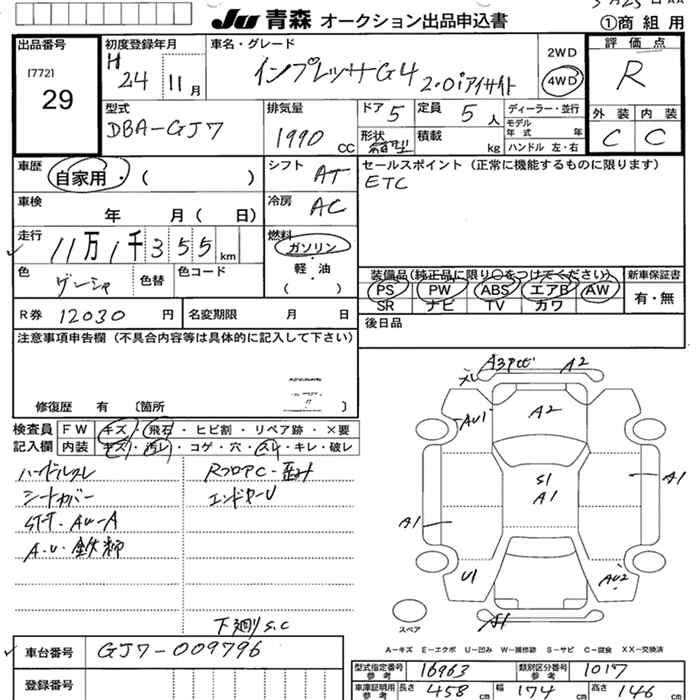 Ju 青森 オークション出品申込書
①商組用
出品番号
(772)
29
初度登録年月
H
24 11月
車名・グレード
インプレッサG4 2.0iアイサイト
2WD
4WD
評価点
R
外装 内装
C C
型式
DBA-GJ7
排気量
1990 cc
ドア 5
定員 5 人
形状 箱型
積載 kg
ディーラー・並行
モデル年式 年
ハンドル 左・右
車歴
自家用・( )
シフト AT
セールスポイント (正常に機能するものに限ります)
ETC
車検 年 月( 日)
冷房 AC
走行 11万1千355km
燃料
ガソリン
軽・油
( )
色 色替 色コード
装備品(純正品に限り○をつけてください)
PS PW ABS エアB AW
SR ナビ TV カワ
新車保証書
有・無
R券 12030 円
名変期限 月 日
後日品
注意事項申告欄(不具合内容等は具体的に記入して下さい)
修復歴 有 〔箇所 〕
検査員 FW キズ・飛石・ヒビ割・リペア跡・×要
記入欄 内装 キズ・汚レ・コゲ・穴・スレ・キレ・破レ
ハンドルスレ
シートカバー
A.U.鉄粉
下廻りS.C
A2
AU1
A2
S1
A1
A1
A1
U1
AU2
A1
スペア
A-キズ E-エクボ U-凹み W-補修跡 S-サビ C-腐食 XX-交換済
車台番号 GJ7-009796
登録番号
型式指定番号 参考 16963
類別区分番号 参考 1017
車庫証明用 参考 長さ 458 cm 幅 174 cm 高さ 146 cm